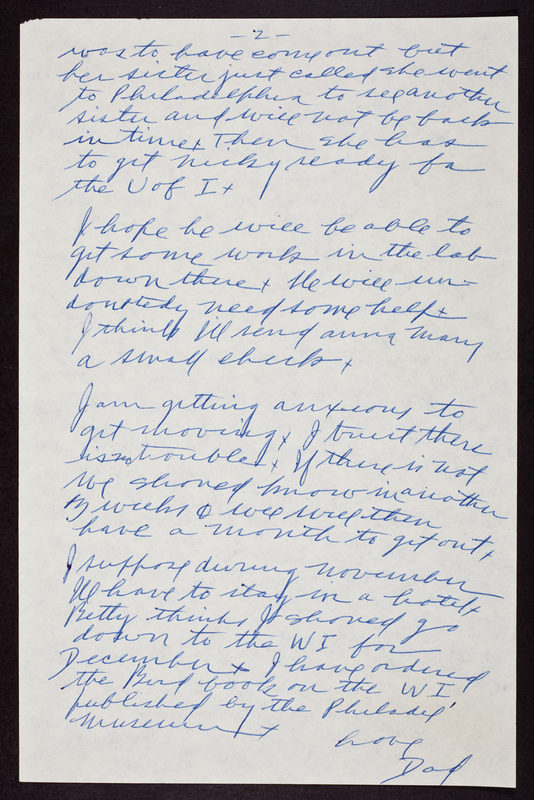 -2-
was to have come out but
her sister just called she went
to Philadelphia to see another
sister and will not be back
in time x Then she has
to get Nicky ready for
the U of I x
I hope he will be able to
get some work in the lab
down there x He will un-
doubtedy need some help x
I think I'll send Anna Mary
a small check x
I am getting anxious to
get moving x I trust there
is no trouble x If there is not
we should know in another
3 weeks & we will then
have a month to get out x
I suppose during November
I'll have to stay in a hotel x
Betty thinks I should go
down to the W I for
December x I have ordered
the Bird book on the W.I.
published by the Philadel'
Museum x
Love
Dad